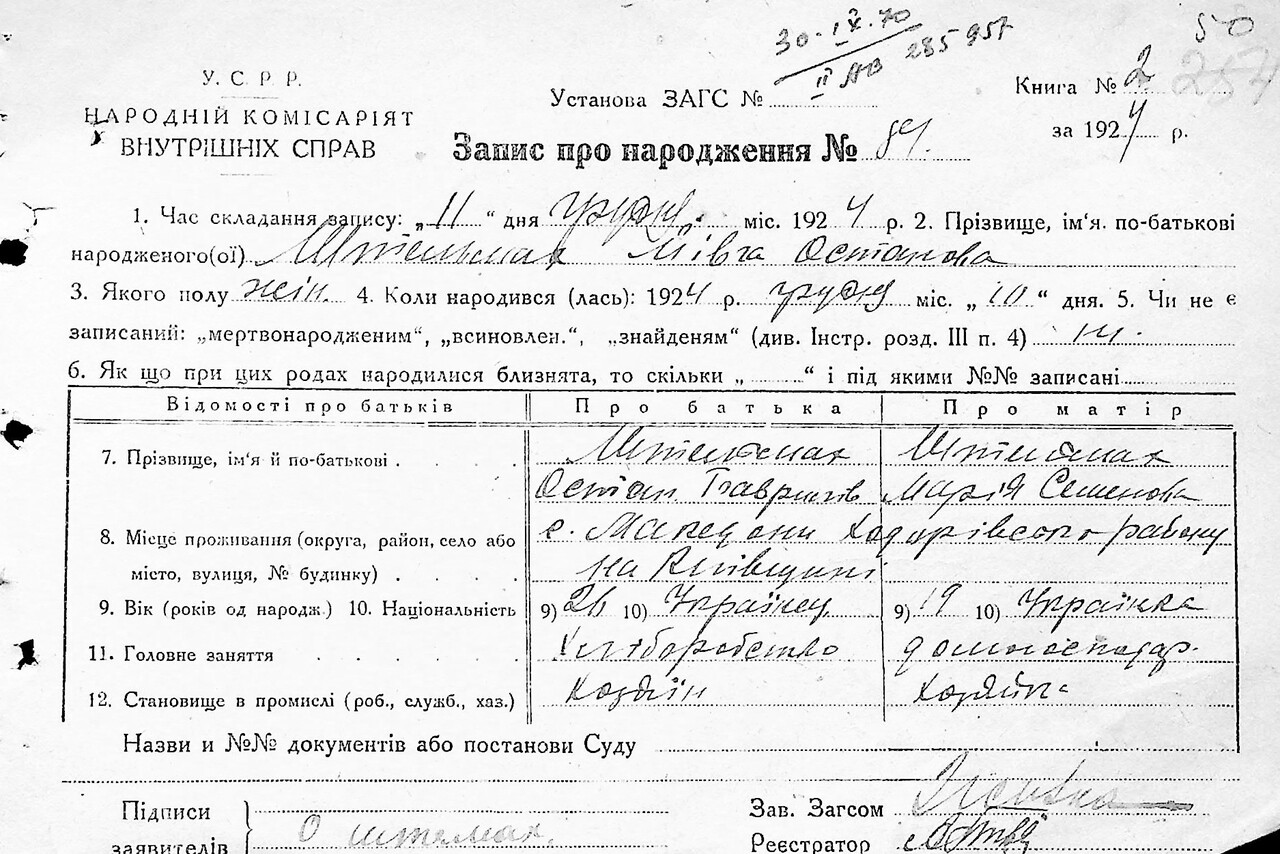 30.IX.70
II АВ 285957
50
257
У. С. Р. Р.
НАРОДНІЙ КОМІСАРІЯТ
ВНУТРІШНІХ СПРАВ
Установа ЗАГС №
Книга № 2
за 1924 р.
Запис про народження № 84.
1. Час складання запису: „11“ дня грудн. міс. 1924 р. 2. Прізвище, ім'я. по-батькові
народженого(ої) Штельмах Мівга Остапова
3. Якого полу жін. 4. Коли народився (лась): 1924 р. грудн міс. „10“ дня. 5. Чи не є
записаний: „мертвонародженим“, „всиновлен.“, „знайденям“ (див. Інстр. розд. III п. 4) ні.
6. Як що при цих родах народилися близнята, то скільки „ “ і під якими №№ записані
Відомості про батьків Про батька Про матір
7. Прізвище, ім'я й по-батькові . . . Штельмах Штельмах
Остап Гаврилів Марія Семенова
8. Місце проживання (округа, район, село або с. Македони Ходорівського району
місто, вулиця, № будинку) . . . . на Київщині
9. Вік (років од народж.) 10. Національність 9) 26 10) Українец 9) 19 10) Українка
11. Головне заняття . . . . . Хліборобство домогосподар.
12. Становище в промислі (роб., служб., хаз.) Хазяїн Хазяйка
Назви и №№ документів або постанови Суду
Підписи
заявителів О штелмах.
Зав. Загсом
Реєстратор